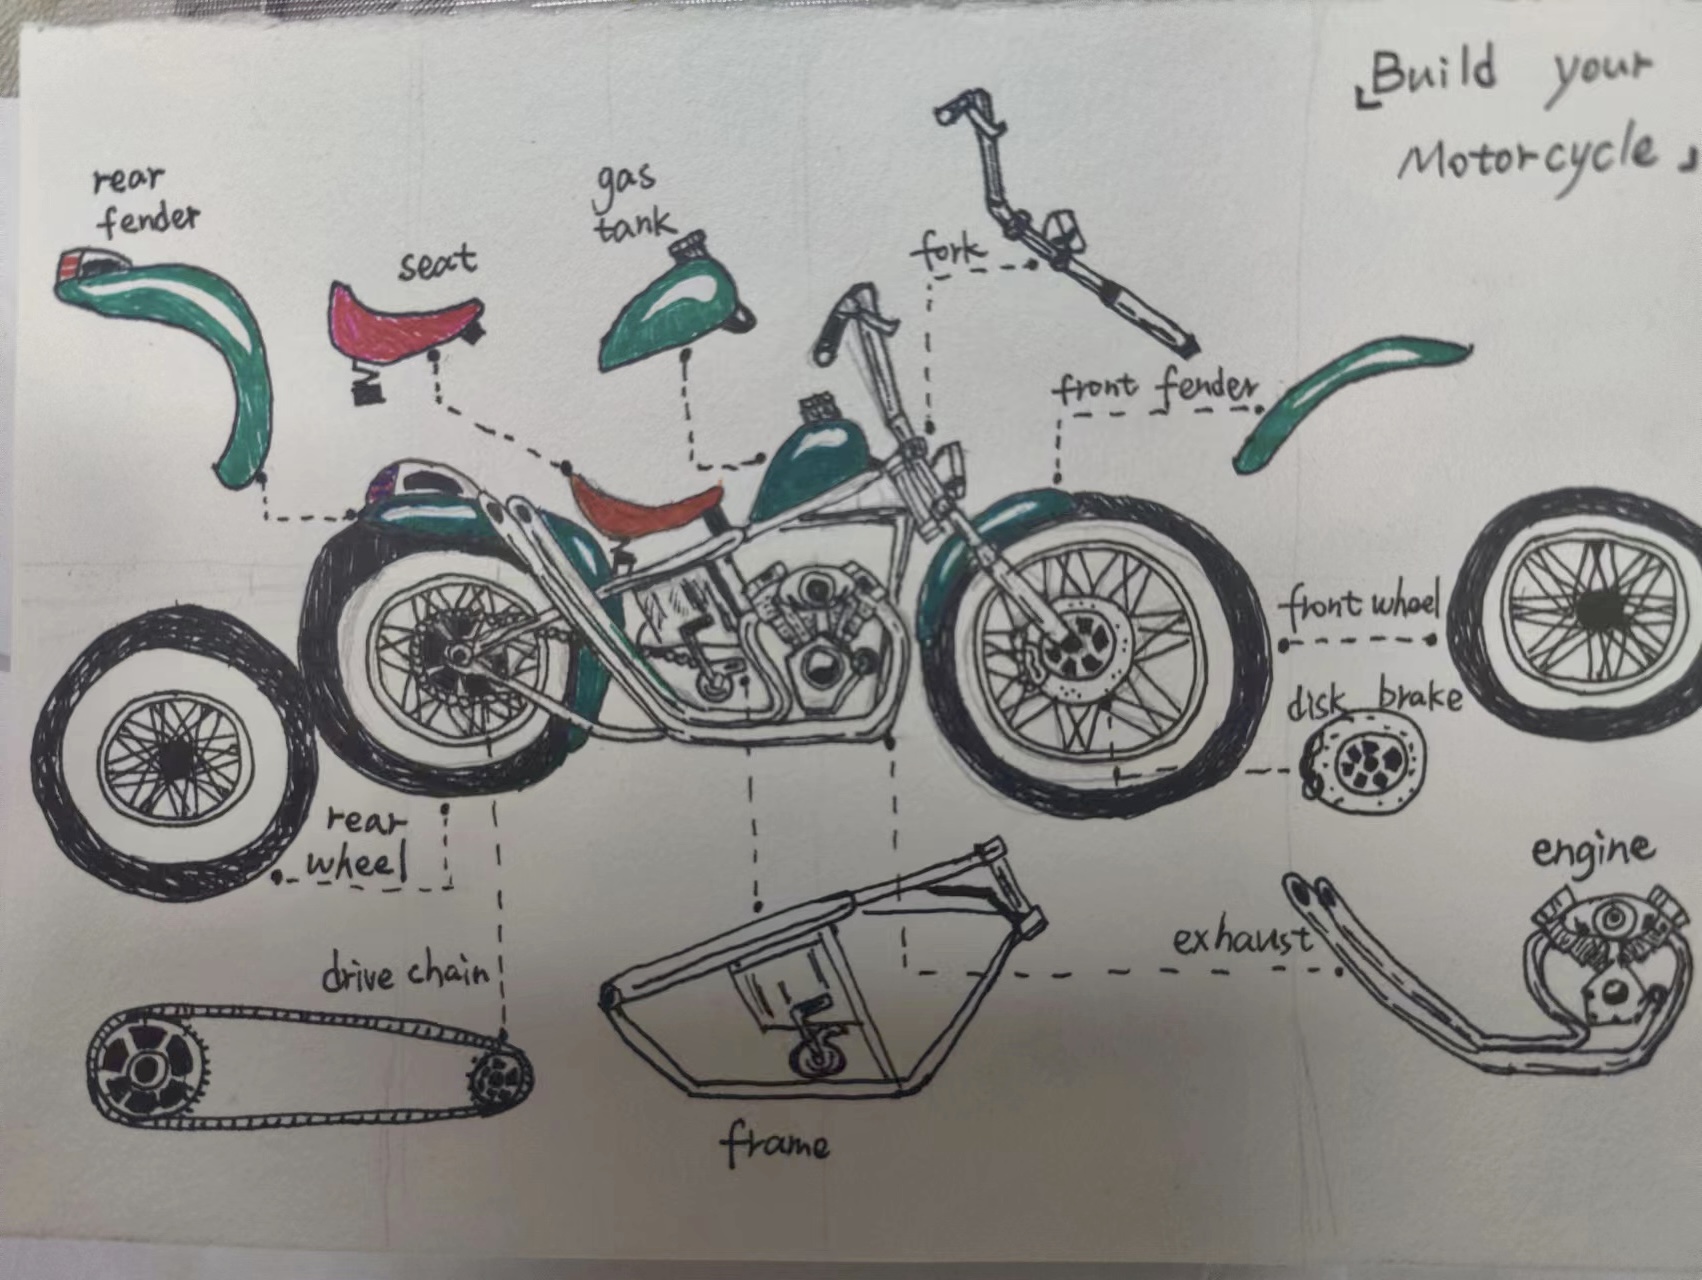 「Build your
Motorcycle」
rear
fender
seat
gas
tank
fork
front fender
front wheel
disk brake
rear
wheel
drive chain
frame
exhaust
engine